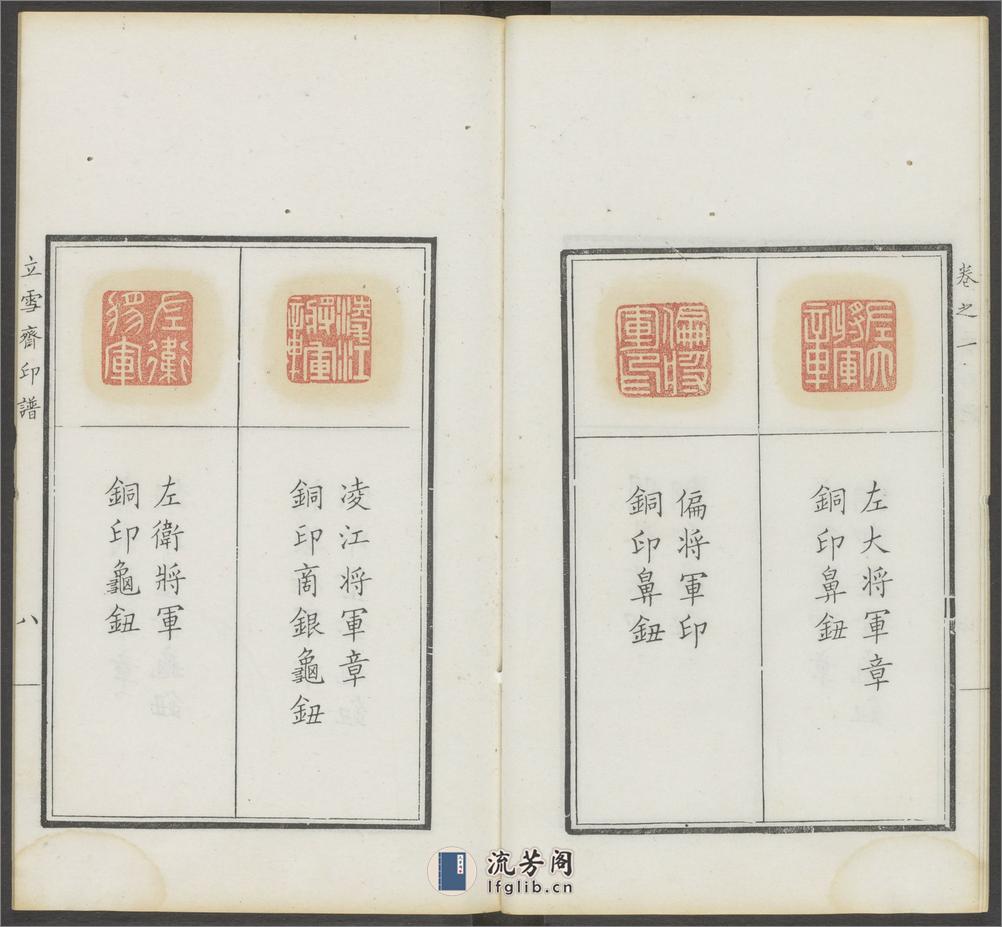 卷之一
左大将軍章
左大将軍章
銅印鼻鈕
偏将軍印
偏将軍印
銅印鼻鈕
淩江将軍章
凌江将軍章
銅印商銀龜鈕
左衛将軍
左衛將軍
銅印龜鈕
立雪齋印譜
八
流芳阁
lfglib.cn